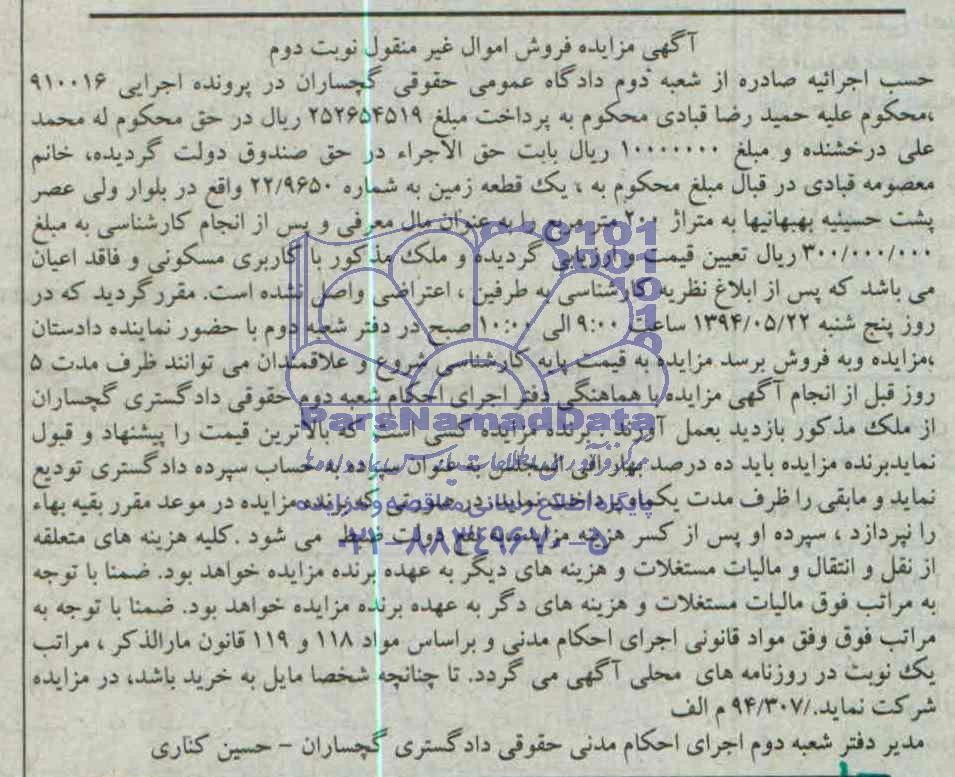 آگهی مزایده فروش اموال غیر منقول نوبت دوم
حسب اجرائیه صادره از شعبه دوم دادگاه عمومی حقوقی گچساران در پرونده اجرایی ۹۱۰۰۱۶
،محکوم علیه حمید رضا قبادی محکوم به پرداخت مبلغ ۲۵۲۶۵۴۵۱۹ ریال در حق محکوم له محمد
علی درخشنده و مبلغ ۱۰۰۰۰۰۰۰ ریال بابت حق الاجراء در حق صندوق دولت گردیده، خانم
معصومه قبادی در قبال مبلغ محکوم به ، یک قطعه زمین به شماره ۲۲/۹۶۵۰ واقع در بلوار ولی عصر
پشت حسینیه بهبهانیها به متراژ ۲۰۰ متر مربع را به عنوان مال معرفی و پس از انجام کارشناسی به مبلغ
۳۰۰/۰۰۰/۰۰۰ ریال تعیین قیمت و ارزیابی گردیده و ملک مذکور با کاربری مسکونی و فاقد اعیان
می باشد که پس از ابلاغ نظریه کارشناسی به طرفین ، اعتراضی واصل نشده است. مقرر گردید که در
روز پنج شنبه ۱۳۹۴/۰۵/۲۲ ساعت ۹:۰۰ الی ۱۰:۰۰ صبح در دفتر شعبه دوم با حضور نماینده دادستان
،مزایده وبه فروش برسد.مزایده به قیمت پایه کارشناسی شروع و علاقمندان می توانند ظرف مدت ۵
روز قبل از انجام آگهی مزایده با هماهنگی دفتر اجرای احکام شعبه دوم حقوقی دادگستری گچساران
از ملک مذکور بازدید بعمل آورند . برنده مزایده کسی است که بالاترین قیمت را پیشنهاد و قبول
نمایدبرنده مزایده باید ده درصد بهارافی المجلس به عنوان سپرده به حساب سپرده دادگستری تودیع
نماید و مابقی را ظرف مدت یکماه پرداخت نماید.در صورتی که برنده مزایده در موعد مقرر بقیه بهاء
را نپردازد ، سپرده او پس از کسر هزینه مزایده،به نفع دولت ضبط می شود .کلیه هزینه های متعلقه
از نقل و انتقال و مالیات مستغلات و هزینه های دیگر به عهده برنده مزایده خواهد بود. ضمنا با توجه
به مراتب فوق مالیات مستغلات و هزینه های دگر به عهده برنده مزایده خواهد بود. ضمنا با توجه به
مراتب فوق وفق مواد قانونی اجرای احکام مدنی و براساس مواد ۱۱۸ و ۱۱۹ قانون مارالذکر ، مراتب
یک نوبت در روزنامه های محلی آگهی می گردد. تا چنانچه شخصا مایل به خرید باشد، در مزایده
شرکت نماید./۹۴/۳۰۷ م الف
مدیر دفتر شعبه دوم اجرای احکام مدنی حقوقی دادگستری گچساران - حسین کناری
ParsNamadData
پایگاه اطلاع رسانی مناقصه و مزایده
۰۲۱-۸۸۳۴۹۶۷۰-۵